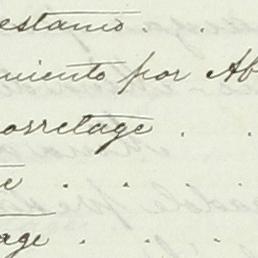 estamo. .
miento por Ab
orretage . .
e . . .
age . . .